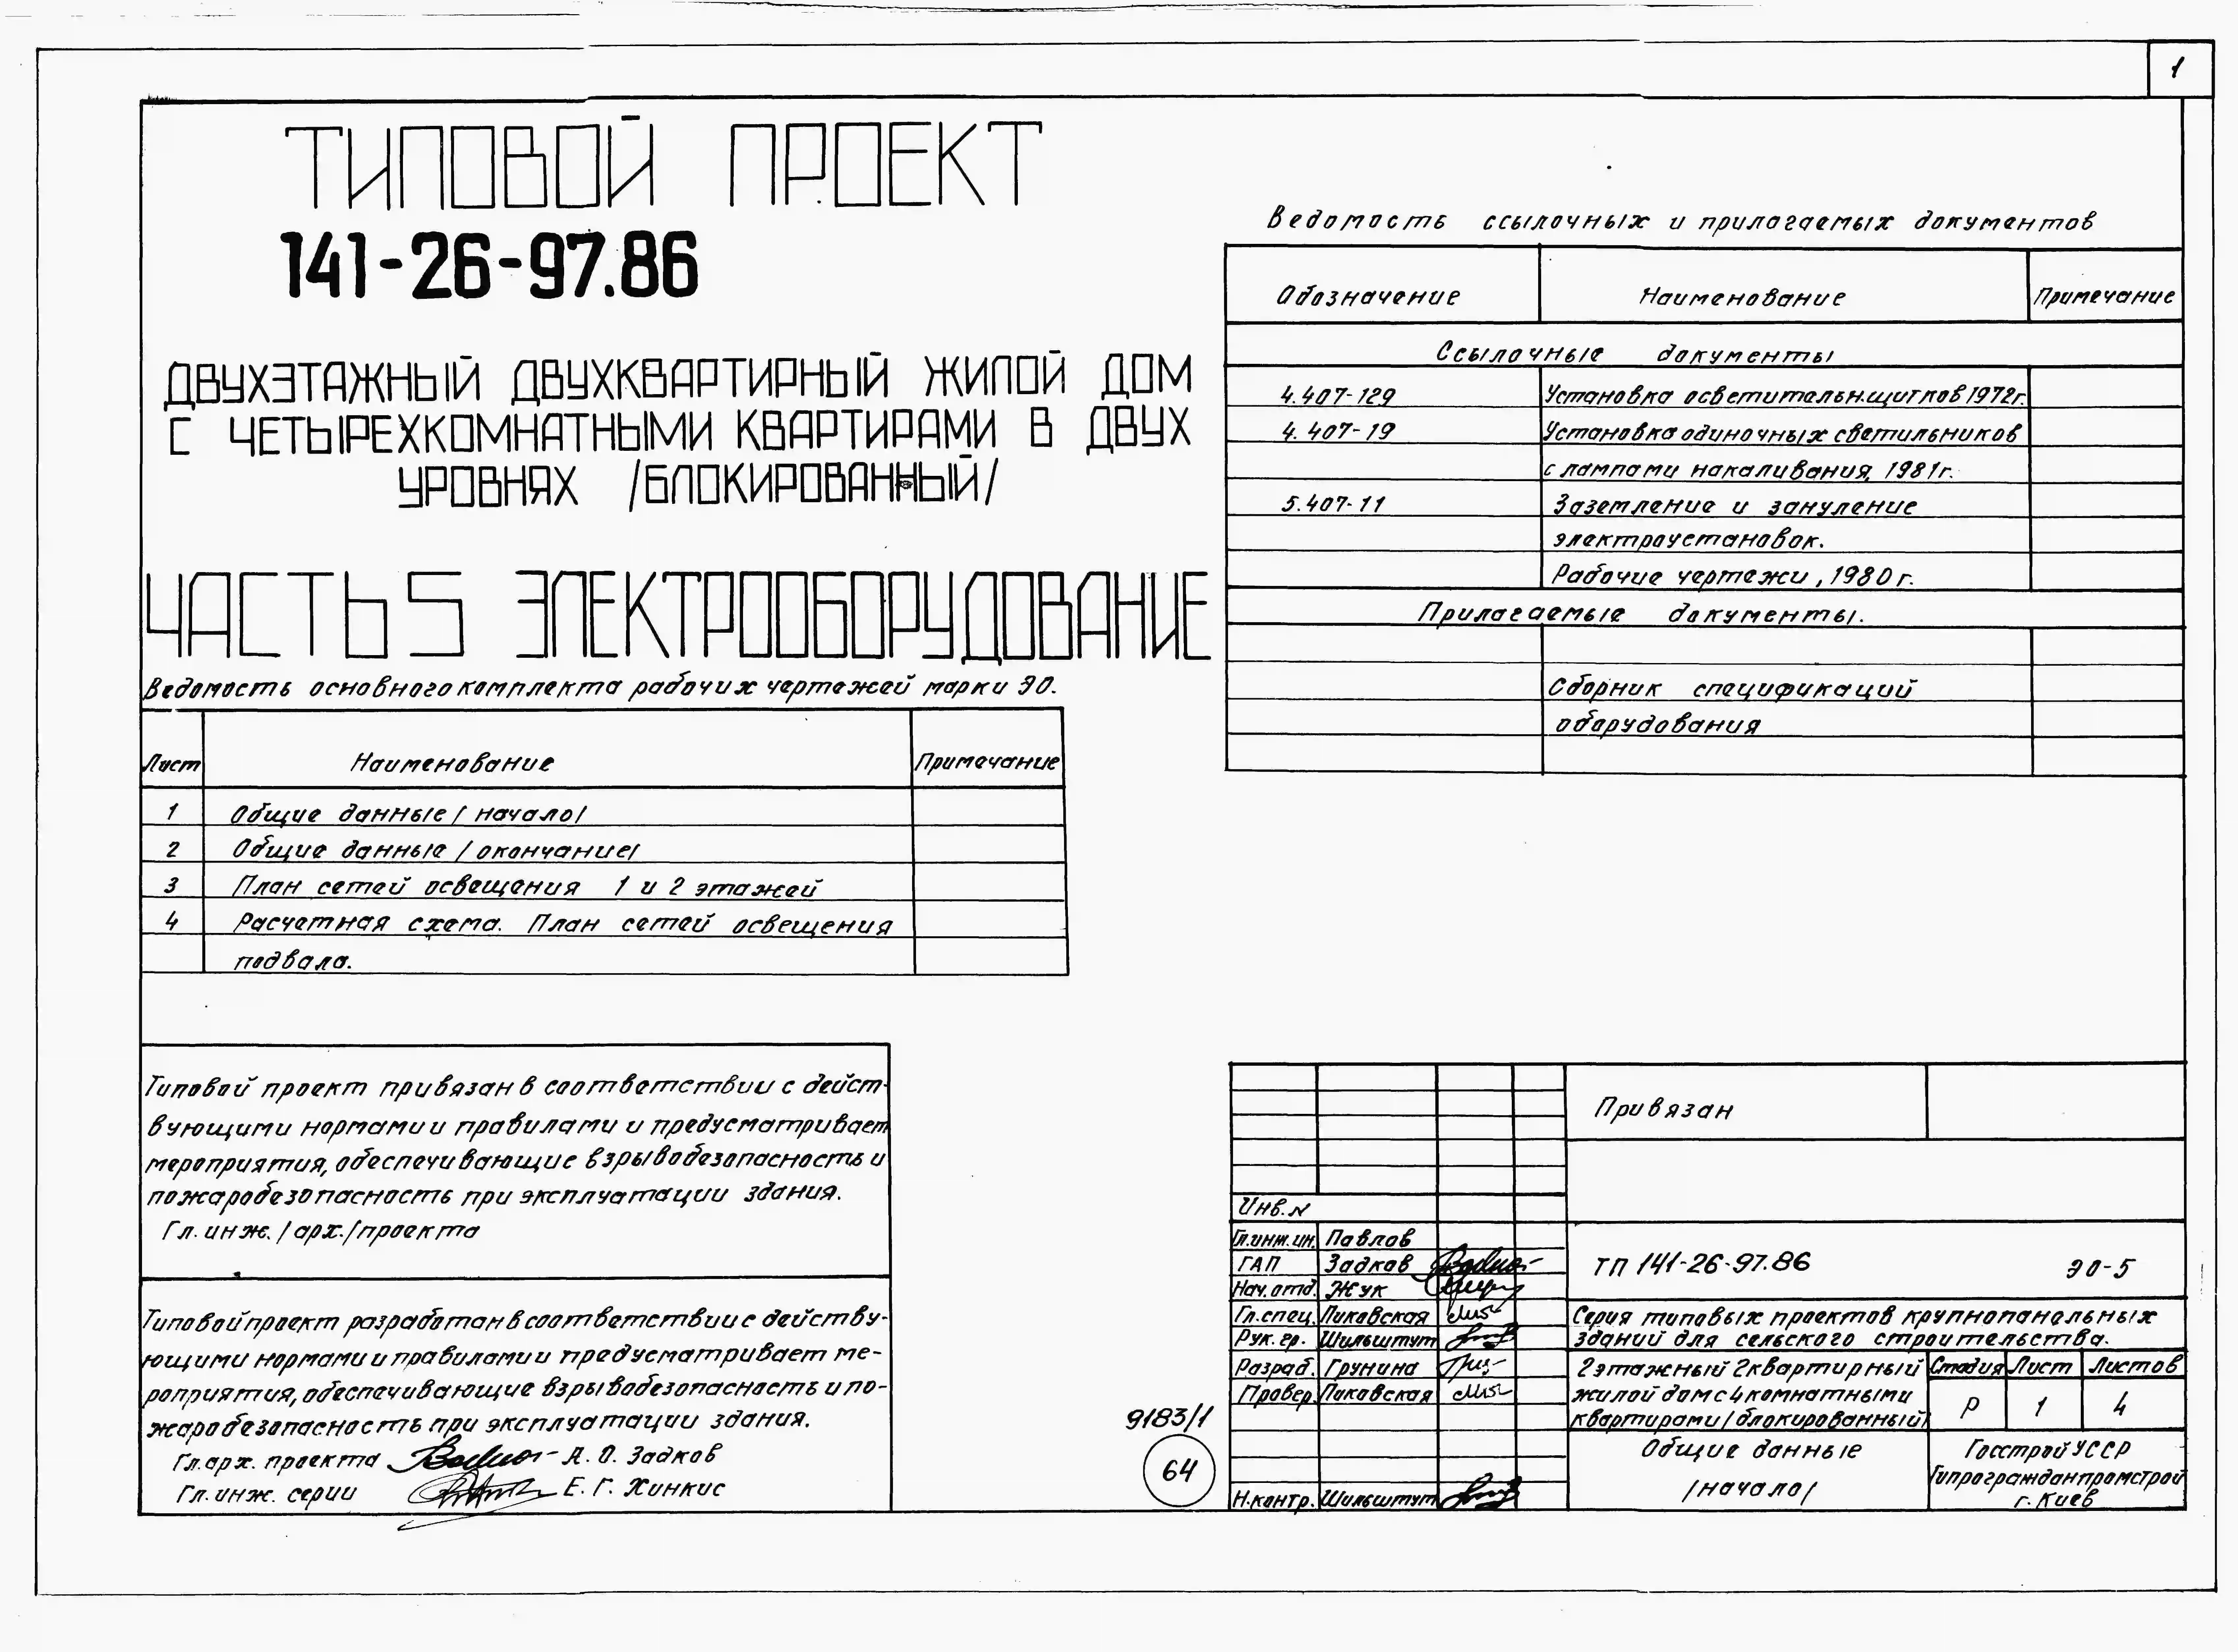 1
ТИПОВОЙ ПРОЕКТ
141-26-97.86
ДВУХЭТАЖНЫЙ ДВУХКВАРТИРНЫЙ ЖИЛОЙ ДОМ
С ЧЕТЫРЕХКОМНАТНЫМИ КВАРТИРАМИ В ДВУХ
УРОВНЯХ /БЛОКИРОВАННЫЙ/
ЧАСТЬ 5 ЭЛЕКТРООБОРУДОВАНИЕ
Ведомость основного комплекта рабочих чертежей марки ЭО.
Лист Наименование Примечание
1 Общие данные /начало/
2 Общие данные /окончание/
3 План сетей освещения 1 и 2 этажей
4 Расчетная схема. План сетей освещения
подвала.
Типовой проект привязан в соответствии с дейст-
вующими нормами и правилами и предусматривает
мероприятия, обеспечивающие взрывобезопасность и
пожаробезопасность при эксплуатации здания.
Гл. инж. /арх./проекта
Типовой проект разработан в соответствии с действу-
ющими нормами и правилами и предусматривает ме-
роприятия, обеспечивающие взрывобезопасность и по-
жаробезопасность при эксплуатации здания.
Гл. арх. проекта А. О. Задков
Гл. инж. серии Е. Г. Хинкис
Ведомость ссылочных и прилагаемых документов
Обозначение Наименование Примечание
Ссылочные документы
4.407-129 Установка осветительн.щитков 1972г.
4.407-19 Установка одиночных светильников
с лампами накаливания, 1981г.
5.407-11 Заземление и зануление
электроустановок.
Рабочие чертежи, 1980г.
Прилагаемые документы.
Сборник спецификаций
оборудования
9183/1
64
Привязан
Инв. N
Гл.инж.ин. Павлов
ГАП Задков
Нач. отд. Жук
Гл.спец. Пиковская
Рук. гр. Шильштут
Разраб. Грунина
Провер. Пиковская
Н.контр. Шильштут
ТП 141-26-97.86 ЭО-5
Серия типовых проектов крупнопанельных
зданий для сельского строительства.
2этажный 2квартирный
жилой дом с 4комнатными
квартирами /блокированный/
Стадия Лист Листов
Р 1 4
Общие данные
/начало/
Госстрой УССР
Гипрогражданпромстрой
г. Киев